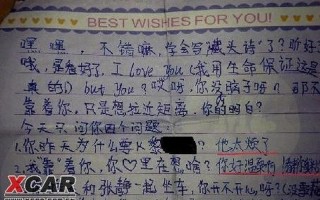 BEST WISHES FOR YOU!
嘿嘿，不错嘛，学会写藏头诗了？
哦，是 I love you (我用生命保证这是
真的) but You？哎呀，你没明白？那不
靠着你，只是想拉近距离，你的明白？
今天只问你两个问题：
1.你昨天为什么要K黎 ？他太烦了
2.我靠着你，你♡里在想啥？你好温
和张静一起坐车，你开不开心呀？
XCAR